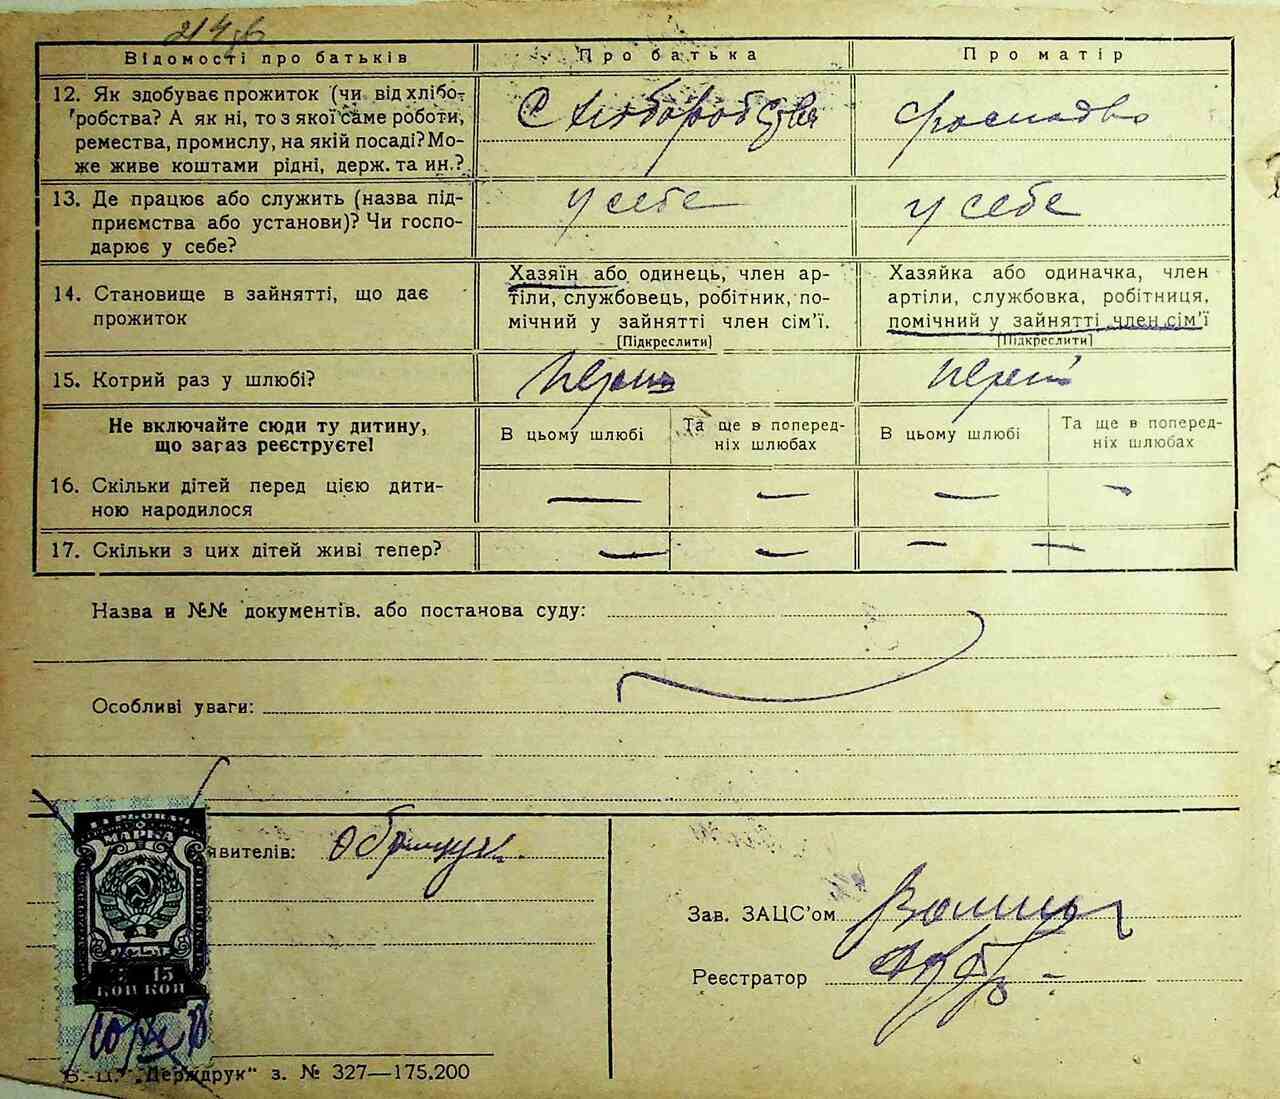 Відомості про батьків
Про батька
Про матір
12. Як здобуває прожиток (чи від хлібо-
робства? А як ні, то з якої саме роботи,
ремества, промислу, на якій посаді? Мо-
же живе коштами рідні, держ. та ин.?
С хліборобства
13. Де працює або служить (назва під-
приємства або установи)? Чи госпо-
дарює у себе?
у себе
у себе
14. Становище в зайнятті, що дає
прожиток
Хазяїн або одинець, член ар-
тіли, службовець, робітник, по-
мічний у зайнятті член сім'ї.
[Підкреслити]
Хазяйка або одиначка, член
артіли, службовка, робітниця,
помічний у зайнятті член сім'ї
[Підкреслити]
15. Котрий раз у шлюбі?
Не включайте сюди ту дитину,
що загаз реєструєте!
В цьому шлюбі
Та ще в поперед-
ніх шлюбах
В цьому шлюбі
Та ще в поперед-
ніх шлюбах
16. Скільки дітей перед цією дити-
ною народилося
— — — —
17. Скільки з цих дітей живі тепер?
— — — —
Назва и №№ документів. або постанова суду:
Особливі уваги:
МАРКА
15
КОП КОП
явителів:
Зав. ЗАЦС'ом
Реєстратор
"Держдрук" з. № 327—175.200